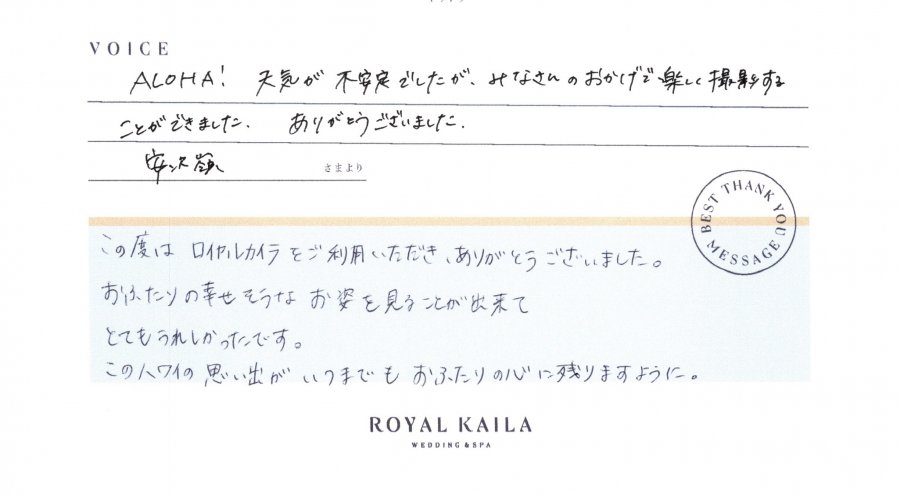 VOICE
ALOHA! 天気が不安定でしたが、みなさんのおかげで楽しく撮影する
ことができました. ありがとうございました.
安沢 さまより
BEST THANK YOU MESSAGE
この度はロイヤルカイラをご利用いただき、ありがとうございました。
おふたりの幸せそうなお姿を見ることが出来て
とてもうれしかったです。
このハワイの思い出がいつまでもおふたりの心に残りますように。
ROYAL KAILA
WEDDING & SPA